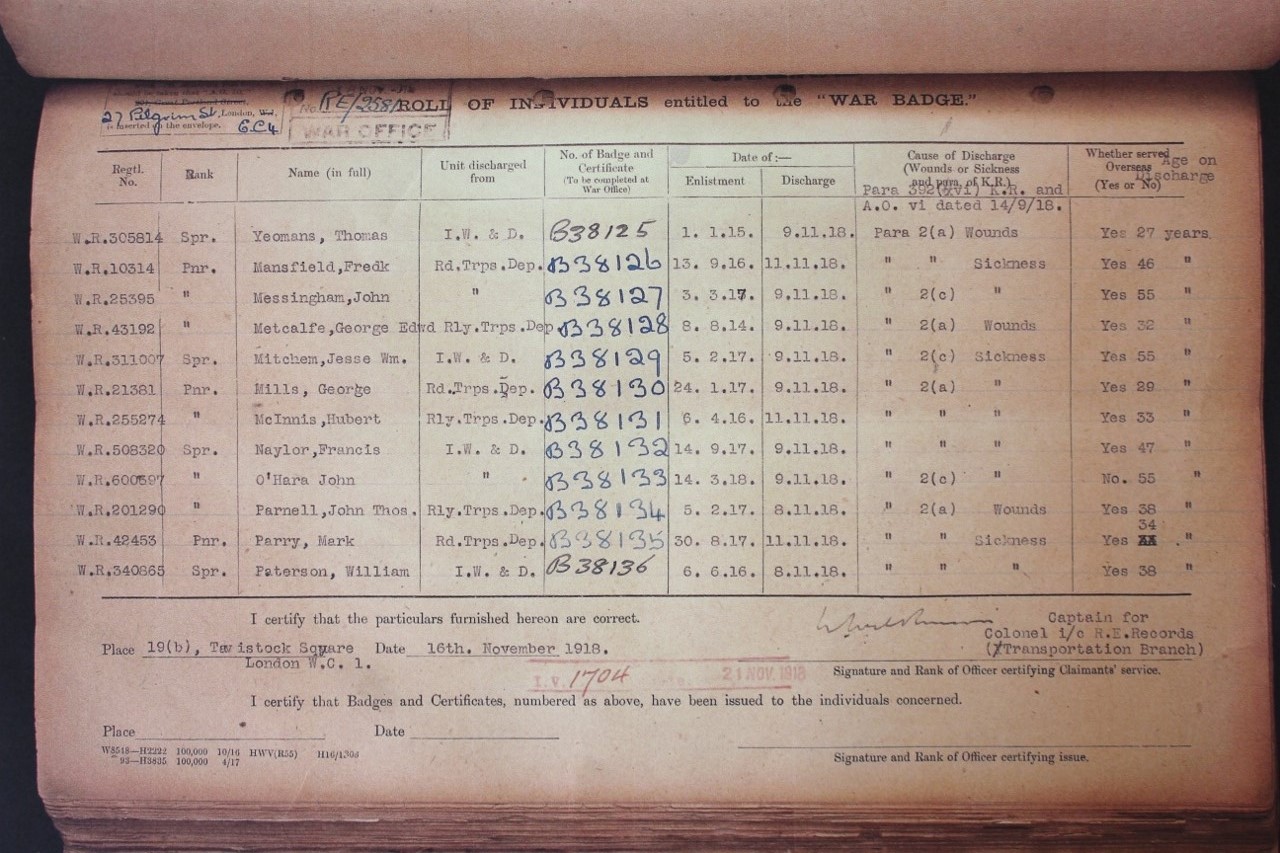 27 Pilgrim St, London,
is inserted in the envelope. E.C.4
No. RE/2581
WAR OFFICE
ROLL OF INDIVIDUALS entitled to the "WAR BADGE."
Regtl. No. Rank Name (in full) Unit discharged from No. of Badge and Certificate (To be completed at War Office) Date of:— Enlistment Discharge Cause of Discharge (Wounds or Sickness and para. of K.R.) Whether served Overseas (Yes or No) Age on Discharge
Para 392(xvi) K.R. and
A.O. vi dated 14/9/18.
W.R.305814 Spr. Yeomans, Thomas I.W. & D. B38125 1. 1.15. 9.11.18. Para 2(a) Wounds Yes 27 years
W.R.10314 Pnr. Mansfield,Fredk Rd.Trps.Dep. B38126 13. 9.16. 11.11.18. " " Sickness Yes 46 "
W.R.25395 " Messingham,John " B38127 3. 3.17. 9.11.18. " 2(c) " Yes 55 "
W.R.43192 " Metcalfe,George Edwd Rly.Trps.Dep B38128 8. 8.14. 9.11.18. " 2(a) Wounds Yes 32 "
W.R.311007 Spr. Mitchem,Jesse Wm. I.W. & D. B38129 5. 2.17. 9.11.18. " 2(c) Sickness Yes 55 "
W.R.21381 Pnr. Mills, George Rd.Trps.Dep. B38130 24. 1.17. 9.11.18. " 2(a) " Yes 29 "
W.R.255274 " McInnis,Hubert Rly.Trps.Dep. B38131 6. 4.16. 11.11.18. " " " Yes 33 "
W.R.508320 Spr. Naylor,Francis I.W. & D. B38132 14. 9.17. 9.11.18. " " " Yes 47 "
W.R.600597 " O'Hara John " B38133 14. 3.18. 9.11.18. " 2(c) " No. 55 "
W.R.201290 " Parnell,John Thos. Rly.Trps.Dep. B38134 5. 2.17. 8.11.18. " 2(a) Wounds Yes 38 "
34
W.R.42453 Pnr. Parry, Mark Rd.Trps.Dep. B38135 30. 8.17. 11.11.18. " " Sickness Yes "
W.R.340865 Spr. Paterson, William I.W. & D. B38136 6. 6.16. 8.11.18. " " " Yes 38 "
I certify that the particulars furnished hereon are correct.
Captain for
Colonel i/c R.E.Records
(Transportation Branch)
Place 19(b), Tavistock Square Date 16th. November 1918.
London W.C. 1.
Signature and Rank of Officer certifying Claimants' service.
I.V. 1704 21 NOV. 1918
I certify that Badges and Certificates, numbered as above, have been issued to the individuals concerned.
Place Date
W8518—H2222 100,000 10/16 HWV(R55) H16/1303
93—H3835 100,000 4/17
Signature and Rank of Officer certifying issue.